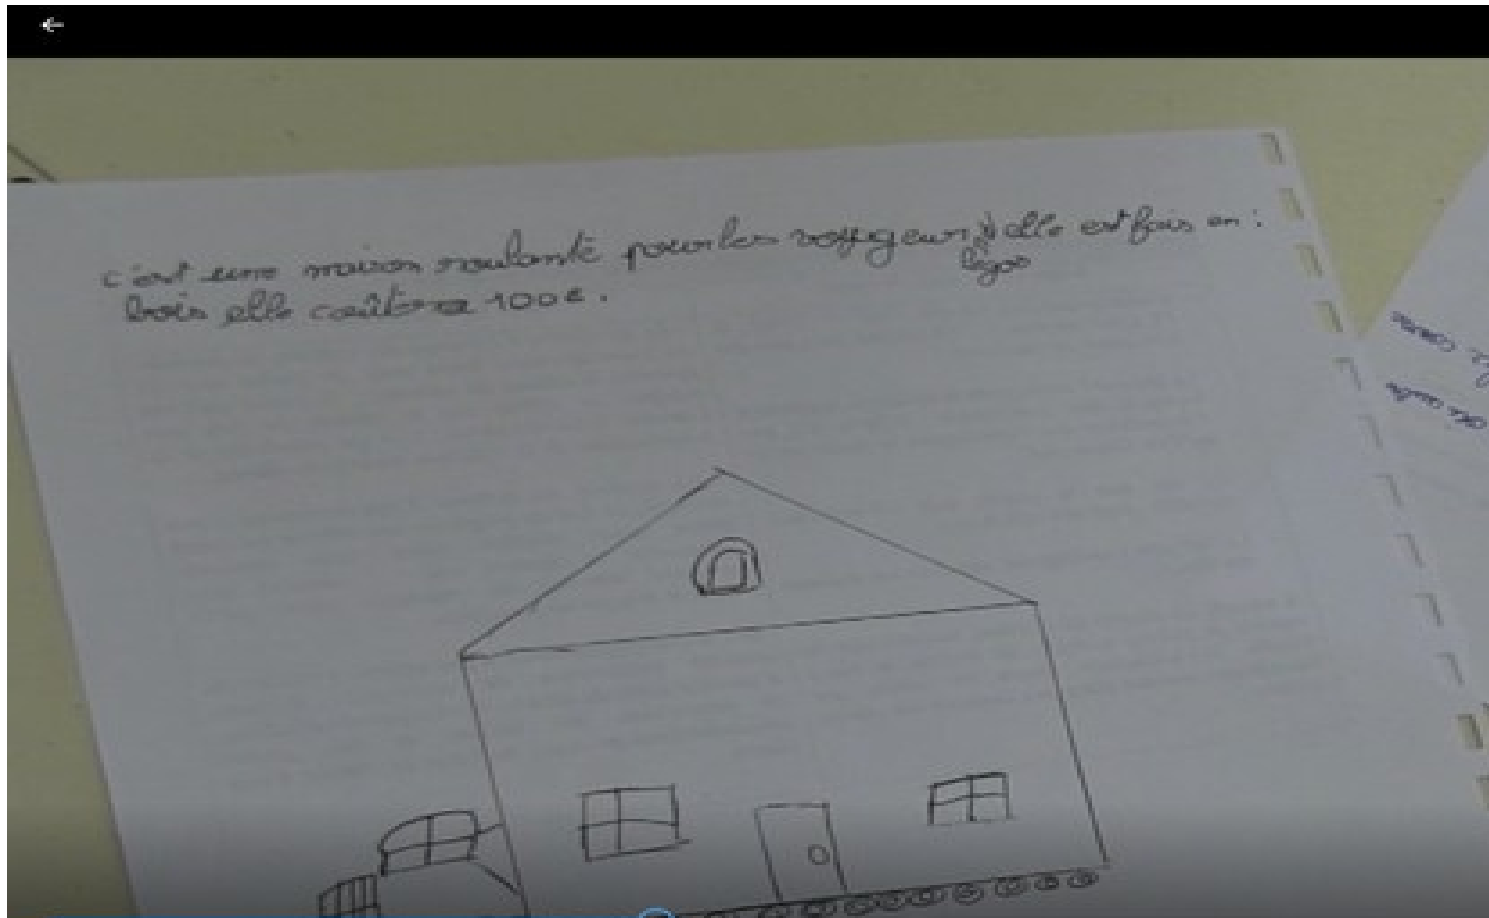 c'est une maison roulante pour les voyageurs elle est fais en :
légos
bois elle coûtera 100€.